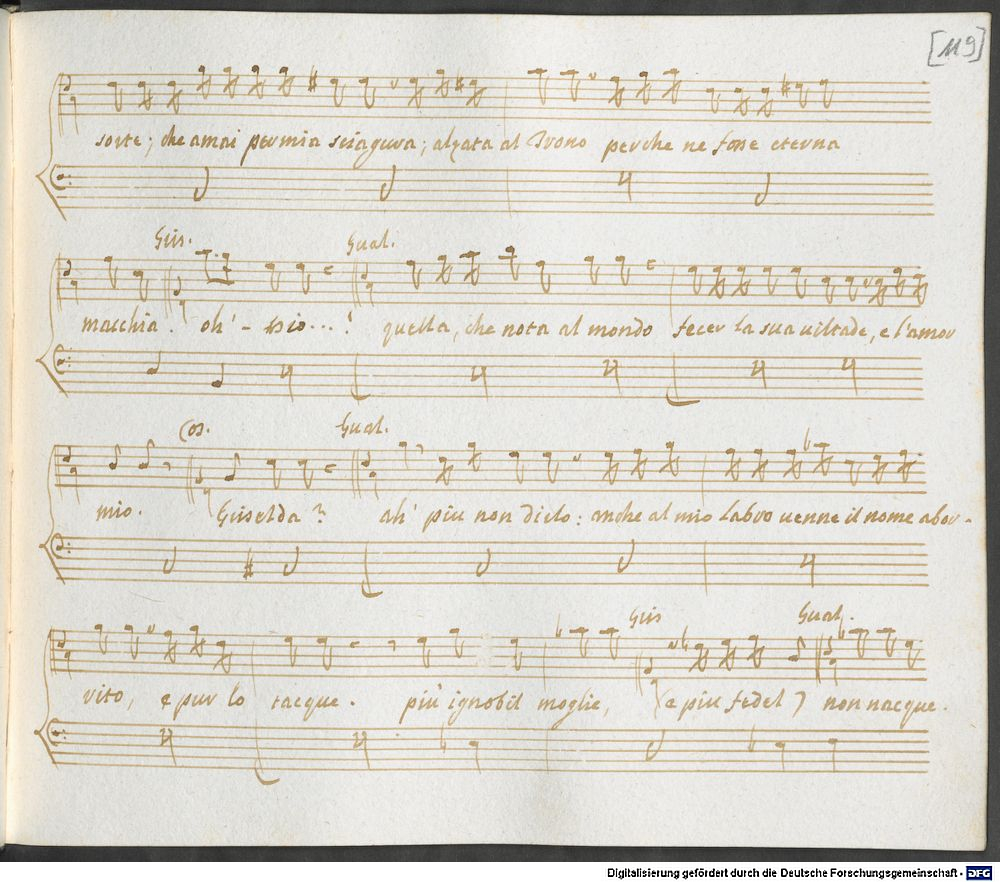 [119]
sorte; che amai per mia sciagura; alzata al Trono perche ne fosse eterna
Gris. Gual.
macchia. oh' - Dio...! quella, che nota al mondo fecer la sua viltade, e l'amor
Cos. Gual.
mio. Griselda? ah' piu non dirlo: anche al mio Labro venne il nome abor-
Gris Gual.
rito, e pur lo tacque. più ignobil moglie, (e piu fedel) non nacque.
Digitalisierung gefördert durch die Deutsche Forschungsgemeinschaft - DFG